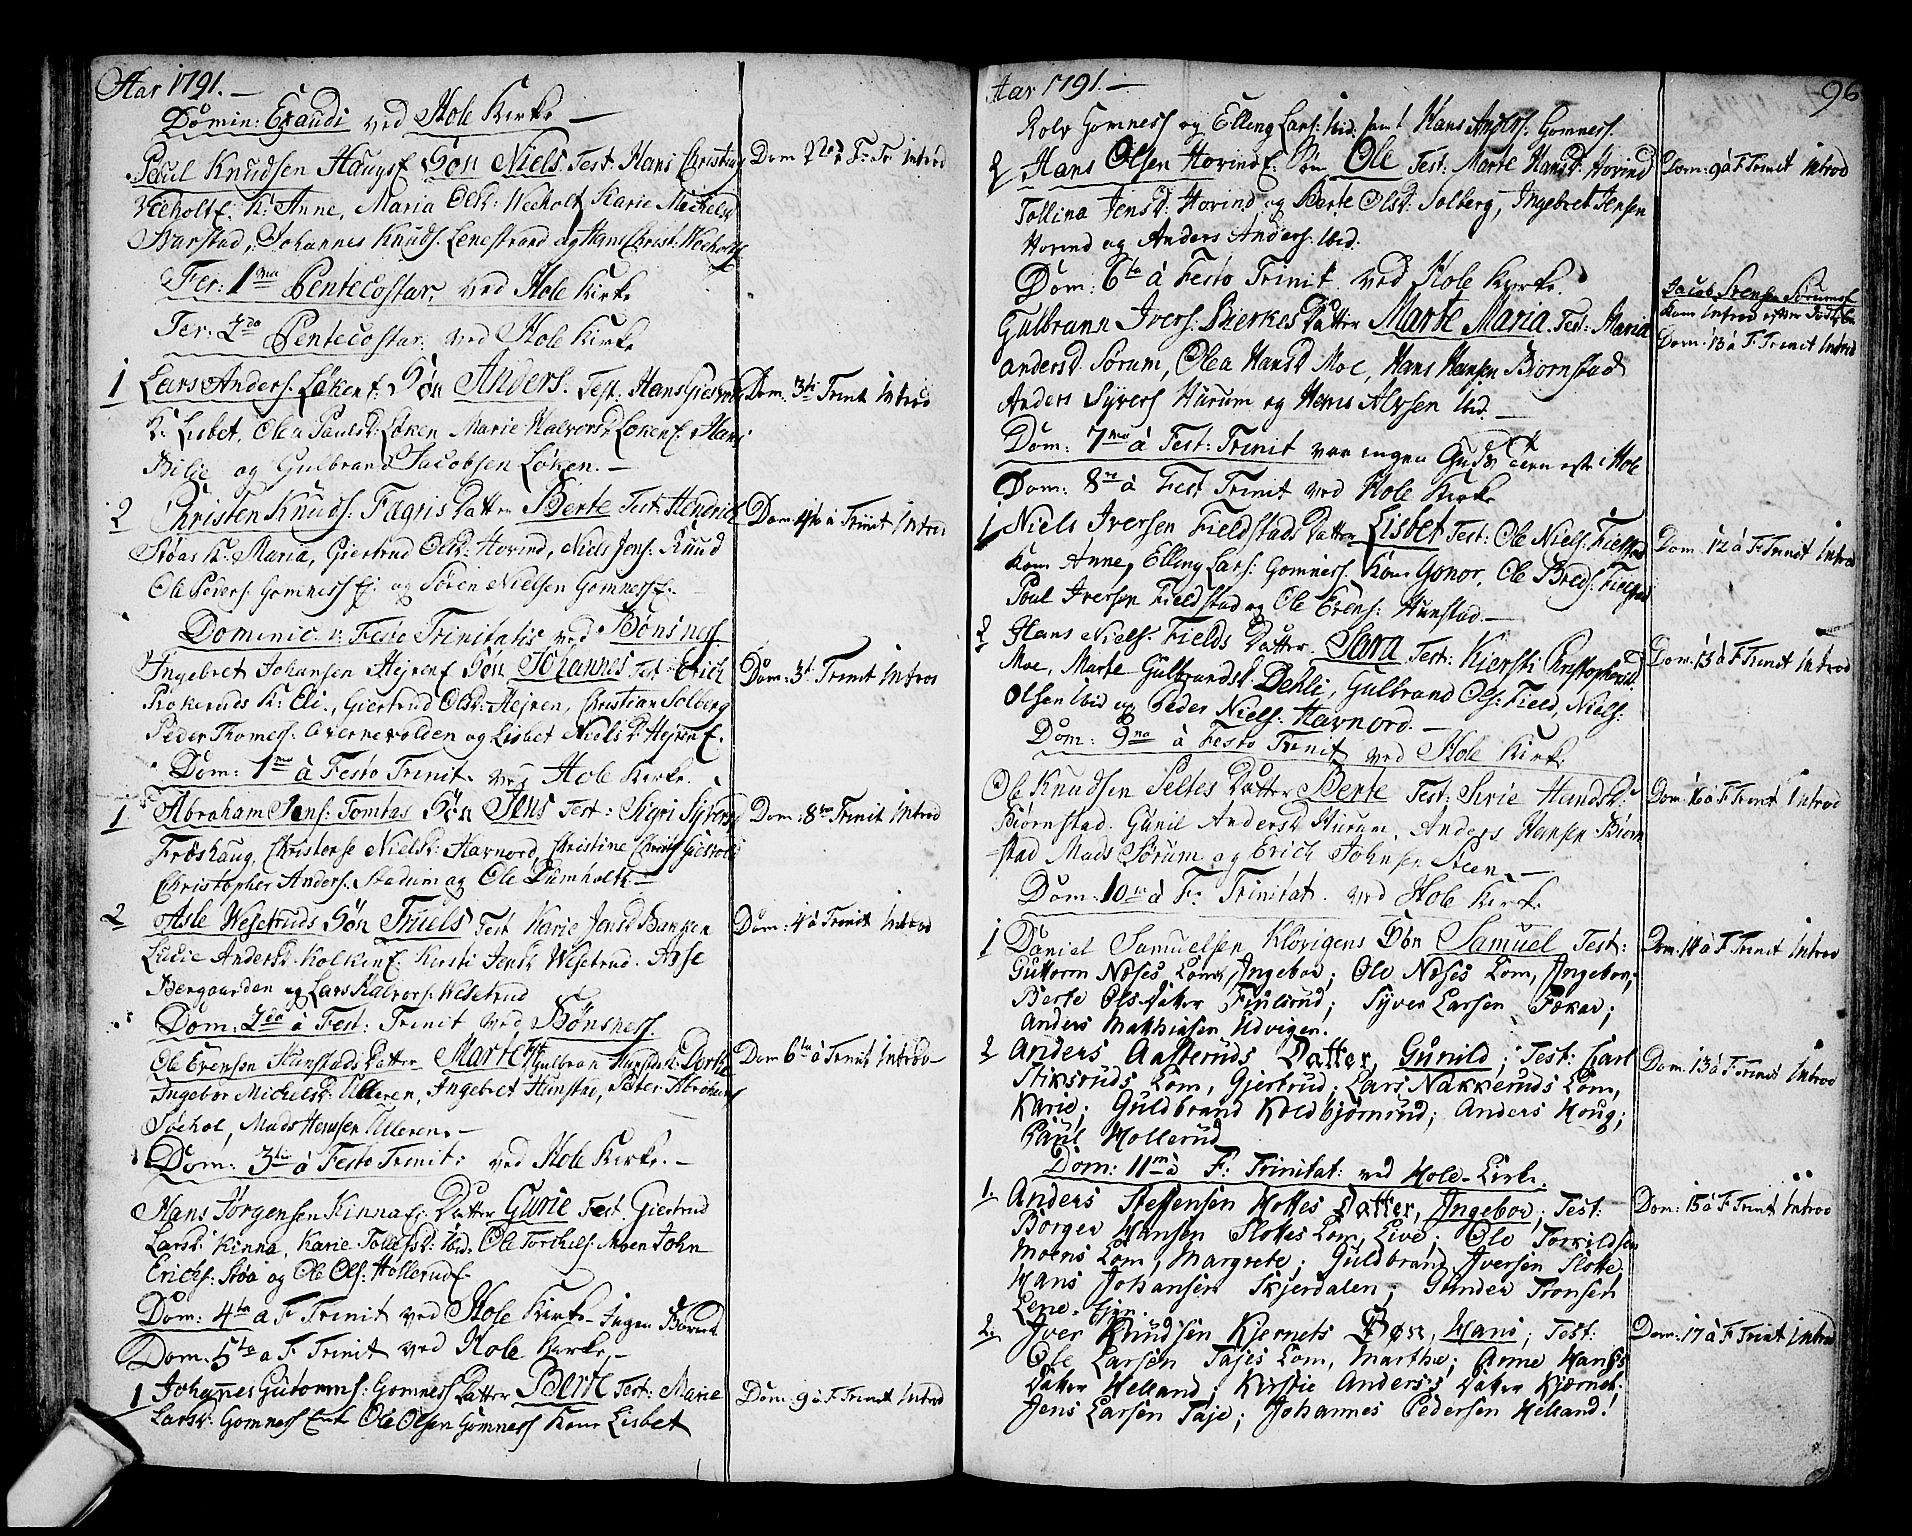 Aar 1791.—
Domin: Exaudi ved Hole Kirke —
Poul Knudsen Haugsf. Søn Niels. Test: Hans Christians
Veeholtf. K: Anne, Maria Olsd: Weeholt, Karie Michelsd
Svarstad, Johannes Knuds: Lenestrand og Hans Christ: Weeholtf
Fer: 1ma Pentecostar: ved Hole Kirke
Fer: 2da Pentecostar: ved Hole Kirke
1 Lars Anders: Løkenf: Søn Anders. Test: Hans
K: Lisbet, Olea Paulsd: Løken Marie Halvorsd Løkenf: Hans
Bilie og Gulbrand Jacobsen Løken.—
2 Christen Knuds: Fægris Datter Berte Test: Hendrich
Støas K: Maria, Giertrud Olsd: Hovind, Niels Jens: Ruud
Ole Peders: Gomness Ej: og Søren Nielsen Gomnessf.—
Dominic: Festo Trinitatis ved Bønsness
Ingebret Johansen Hejrenf Søn Johannes Test: Erich
Rokeruds K: Eli., Giertrud Olsd: Hejren, Christian Solberg
Peder Thomess: og Lisbet Nielsd: Hejrenf.
Dom: 1ma à Festo Trinit. ved Hole Kirke.
1 Abraham Jens: Tomtas Søn Jens Test: Sigri Syversd
Frøshaug, Christense Nielsd: Havnord, Christine
Christopher Anders: Stadum og Ole Dumholt:—
2 Asle Wesetruds Søn Truels Test Karie Jensd
Lucie Andersd: Kolkinf. Kersti Jensd Wesetrud. Asse
Bergaarden og Lars Halvors: Wesetrud
Dom: 2da à Fest: Trinit ved Bønsness.
Ole Evensen Hunstads Datter Marte Test Gulbran Hunstads K: Dorthe
Ingebor Michelsd: Ulleren, Ingebret Hunstad, Peter Abraham
Søehol, Mads Hansen Ulleren.—
Dom: 3tia à Festo Trinit: ved Hole Kirke.—
Hans Jørgensen Kinnaf: Datter Gurie Test. Giertrud
Larsd: Kinna, Karie Tollefsd: ibid. Ole Torchels: Moen John
Erichs: Støa og Ole Ols: Hollerudf.
Dom: 4ta a F Trinit ved Hole Kirke— Ingen Børn
Dom: 5ta a F Trinit ved Hole Kirke.—
1 Johannes Gutorms: Gomness Datter Berte Test: Marie
Larsd: Gomness Ent Ole Olsen Gomness Kone Lisbet
Dom 2da à F: Tr: Introd
Dom: 3ti Trinit Introd
Dom 4ta à Trinit Introd
Dom: 3t Trinit Introd
Dom: 8va Trinit Introd
Dom: 4 à Trinit Introd
Dom 6ta à Trinit Introd—
Dom: 9 à F Trinit Introd
Aar 1791.—
96
Rolv Gomness og Elling Lars: ibid: samt Hans Anders: Gomness.
2 Hans Olsen Hovindf. Søn Ole Test: Marte Hansd: Hovind
Tollina Jensd: Hovind og Berte Olsd: Solberg, Ingebret Jensen
Hovind og Anders Anders: ibid:
Dom: 6ta à Festo Trinit. ved Hole Kirke.
Gulbrann Ivers: Bierkes Datter Marte Maria. Test: Maria
Andersd Sørum, Olea Hansd Moe, Hans Hansen Biornstad
Anders Syvers Hurum og Hans Alvsen ibid.—
Dom: 7ma à Fest: Trinit var ingen Guds i Hole
Dom: 8va à Fest Trinit ved Hole Kirke
1 Niels Iversen Fieldstads Datter Lisbet Test: Ole Niels: Fieldstad
Kone Anne, Elling Lars: Gomness: Kone Gonor, Ole Breds:
Poul Iversen Fieldstad og Ole Evens: Hunstad.—
2 Hans Niels: Fields Datter. Sara Test: Kiersti Christophersd:
Moe, Marte Gulbrandsd. Dehli, Gulbrand Ols: Field, Niels:
Olsen ibid og Peder Niels: Havnord.—
Dom: 9na à Festo Trinit ved Hole Kirke
Ole Knudsen Seltes Datter Berte Test: Sirie Hansd:
Biørnstad. Gunil Andersd Hurum, Anders Hansen Biørn
-stad Mads Sørum og Erich Johnsen Steen.—
Dom: 10ma à F: Trinitat. ved Hole Kirke
1 Daniel Samuelsen Kløvigens Søn Samuel Test:
Guttorm Næses Kone, Ingebor; Ole Næses Kone, Ingebor;
Berte Ols Datter Finsrud; Syver Larsen Fæker;
Anders Mathiasen Udvigen.
2 Anders Aasteruds Datter, Gunild; Test: Carl
Stiksruds Kone, Giertrud; Lars Nakkeruds Kone,
Karie; Guldbrand Koldbjørnsrud; Anders Houg;
Paul Hollerud
Dom: 11ma à F: Trinitat: ved Hole-Kirke.
1. Anders Steffensen Hottes Datter, Ingebor; Test:
Børger Hansen Slottes Kone, Live; Ole Torkildsen
Moens Kone, Margrete; Guldbrand Iversen Slotte
Hans Johansen Skjerdalen; Gunder Tronsen
Lene. Ejn.
2. Iver Knudsen Kjernets Søn, Hans; Test:
Ole Larsen Tajes Kone, Marthe; Anne Hans
Datter Helland; Kirstie Anders Datter Kjærnet:
Jens Larsen Taje; Johannes Pedersen Helland!
Dom: 9 à F Trinit Introd
Jacob Svensen Sørumsf
Kone Introd efter
Dom: 13 à F. Trinit Introd
Dom: 12 à F: Trinit Introd
Dom: 13 à F Trinit Introd
Dom: 16 à F Trinit Introd
Dom: 14 à F: Trinit Introd
Dom: 13 à F Trinit Introd
Dom: 15 à F: Trinit Introd
Dom: 17 à F Trinit Introd